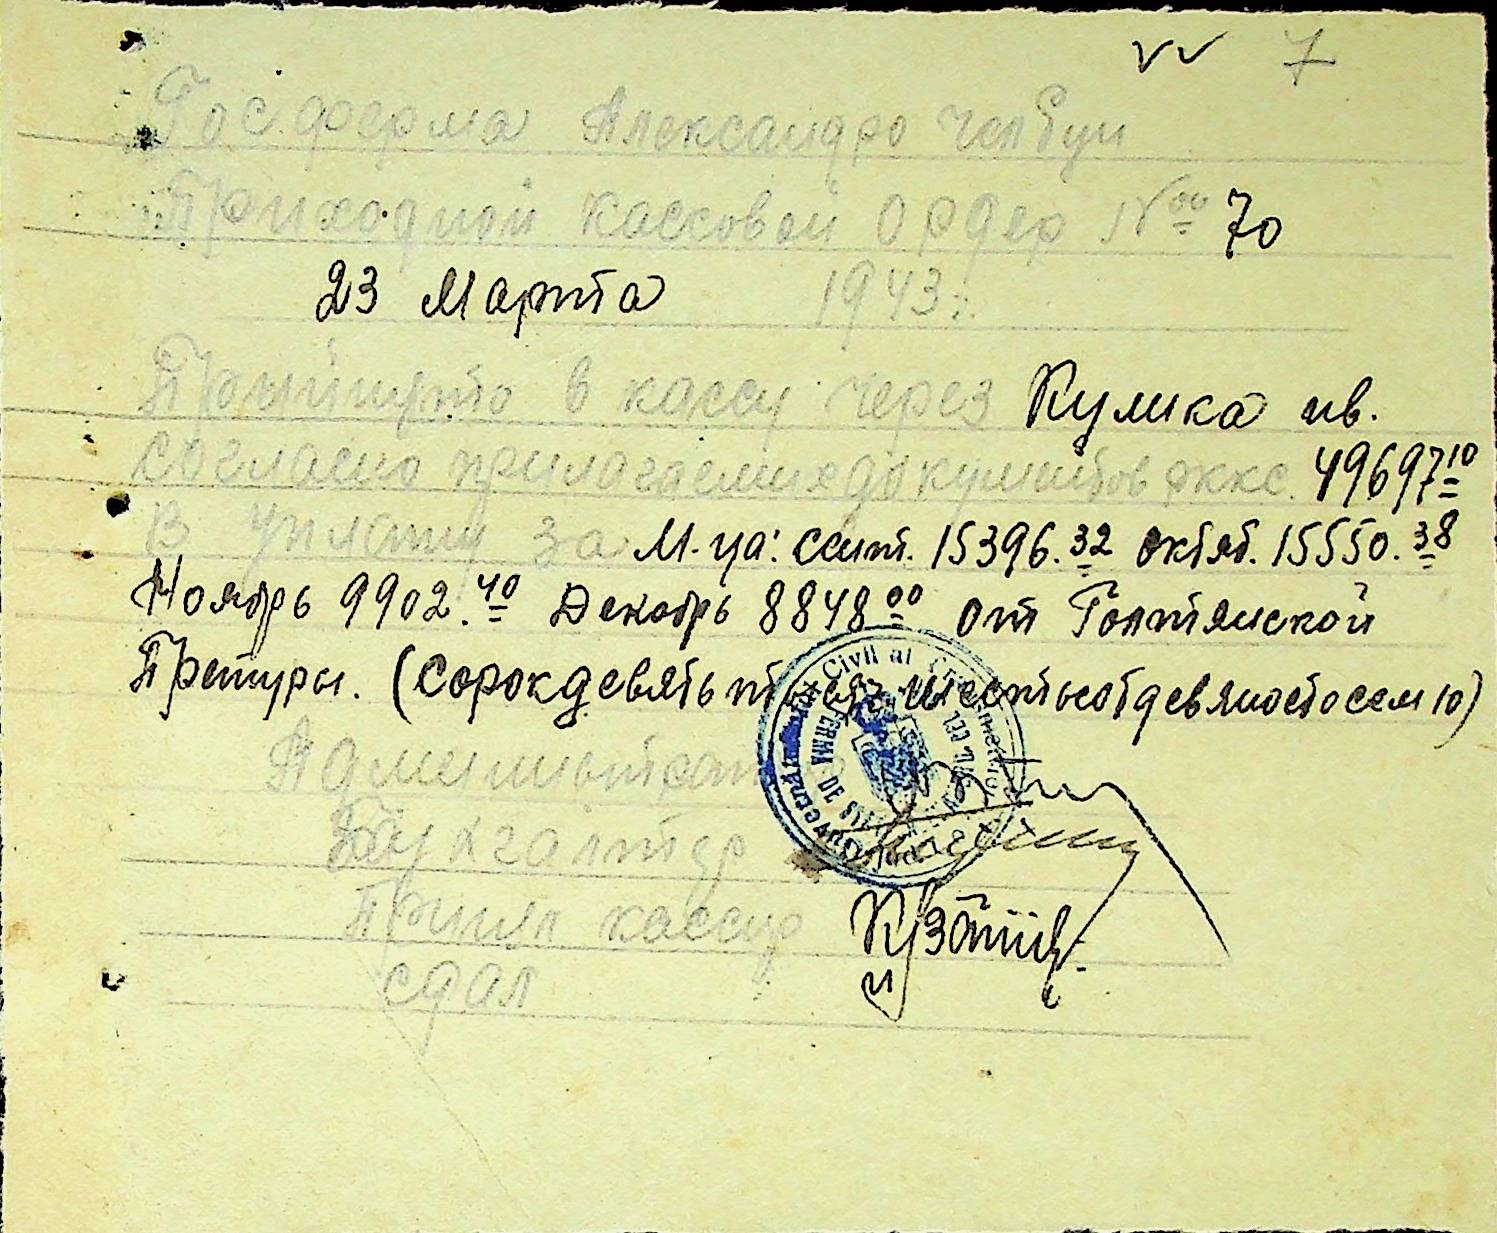 vv 7
Гос. ферма Александро Челбуи
Приходной кассовой ордер № 70
23 Марта 1943 г.
Прыйнуто в кассу через Кулика ив.
согласно прилагаемих документов 49697 10
В уплату за М-ца: сент. 15396.32 октяб. 15550.38
Ноябрь 9902.40 Декабрь 8848 00 от Голтянской
Претуры. (Сорокдевять тысяч шестьсотдевяностосем 10)
Админыстрат
Бухгалтер
Принял кассир
сдал
Civil al FERMA DE